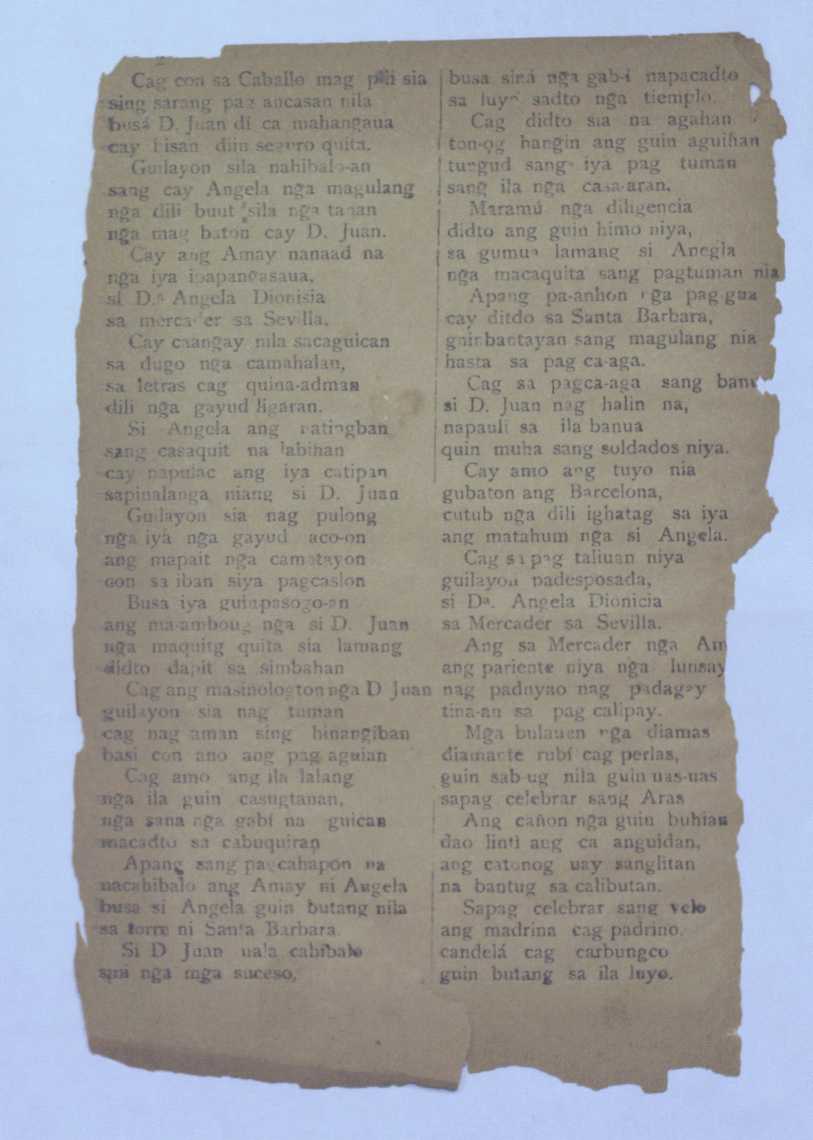 Cag con sa Caballo mag pili sia
sing sarang pag ancasan nila
busá D. Juan di ca mahangaua
cay bisan diin seguro quita.
Guilayon sila nahibalo-an
sang cay Angela nga magulang
nga dili buut sila nga tanan
nga mag baton cay D. Juan.
Cay ang Amay nanaad na
nga iya ipapangasaua,
si D.ª Angela Dionisia
sa mercader sa Sevilla.
Cay caangay nila sacaguican
sa dugo nga camahalan,
sa letras cag quina-adman
dili nga gayud ligaran.
Si Angela ang natingban
sang casaquit na labihan
cay napulac ang iya catipan
sapinalanga niang si D. Juan
Guilayon sia nag pulong
nga iya nga gayud aco-on
ang mapait nga camatayon
con sa iban siya pagcaslon
Busa iya guinpasogo-an
ang ma-amboug nga si D. Juan
nga maquitg quita sia lamang
didto dapit sa simbahan
Cag ang masinologton nga D Juan
guilayon sia nag tuman
cag nag aman sing hinangiban
basi con ano ang pag aguian
Cag amo ang ila lalang
nga ila guin casugtanan,
nga sana nga gabi na guican
macadto sa cabuquiran
Apang sang pagcahapon na
nacahibalo ang Amay ni Angela
busa si Angela guin butang nila
sa torre ni Santa Barbara.
Si D Juan uala cahibalo
sini nga mga suceso,
busa siná nga gab-i napacadto
sa luyo sadto nga tiempo.
Cag didto sia na agahan
ton-og hangin ang guin aguihan
tungud sang iya pag tuman
sang ila nga casa-aran.
Maramú nga diligencia
didto ang guin himo niya,
sa gumua lamang si Anegla
nga macaquita sang pagtuman nia
Apang pa-anhon nga pag-gua
cay ditdo sa Santa Barbara,
guinbantayan sang magulang nia
hasta sa pag ca-aga.
Cag sa pagca-aga sang
si D. Juan nag halin na,
napauli sa ila banua
quin muha sang soldados niya.
Cay amo ang tuyo nia
gubaton ang Barcelona,
cutub nga dili ighatag sa iya
ang matahum nga si Angela.
Cag sa pag taliuan niya
guilayon nadesposada,
si Dª. Angela Dionicia
sa Mercader sa Sevilla.
Ang sa Mercader nga Am
ang pariente niya nga lunsay
nag padnyao nag padagay
tina-an sa pag calipay.
Mga bulauen nga diamas
diamante rubí cag perlas,
guin sab-ug nila guin uas-uas
sapag celebrar sang Aras
Ang cañon nga guin buhian
dao linti ang ca anguidan,
ang catonog uay sanglitan
na bantug sa calibutan.
Sapag celebrar sang velo
ang madrina cag padrino.
candelá cag carbungco
guin butang sa ila luyo.